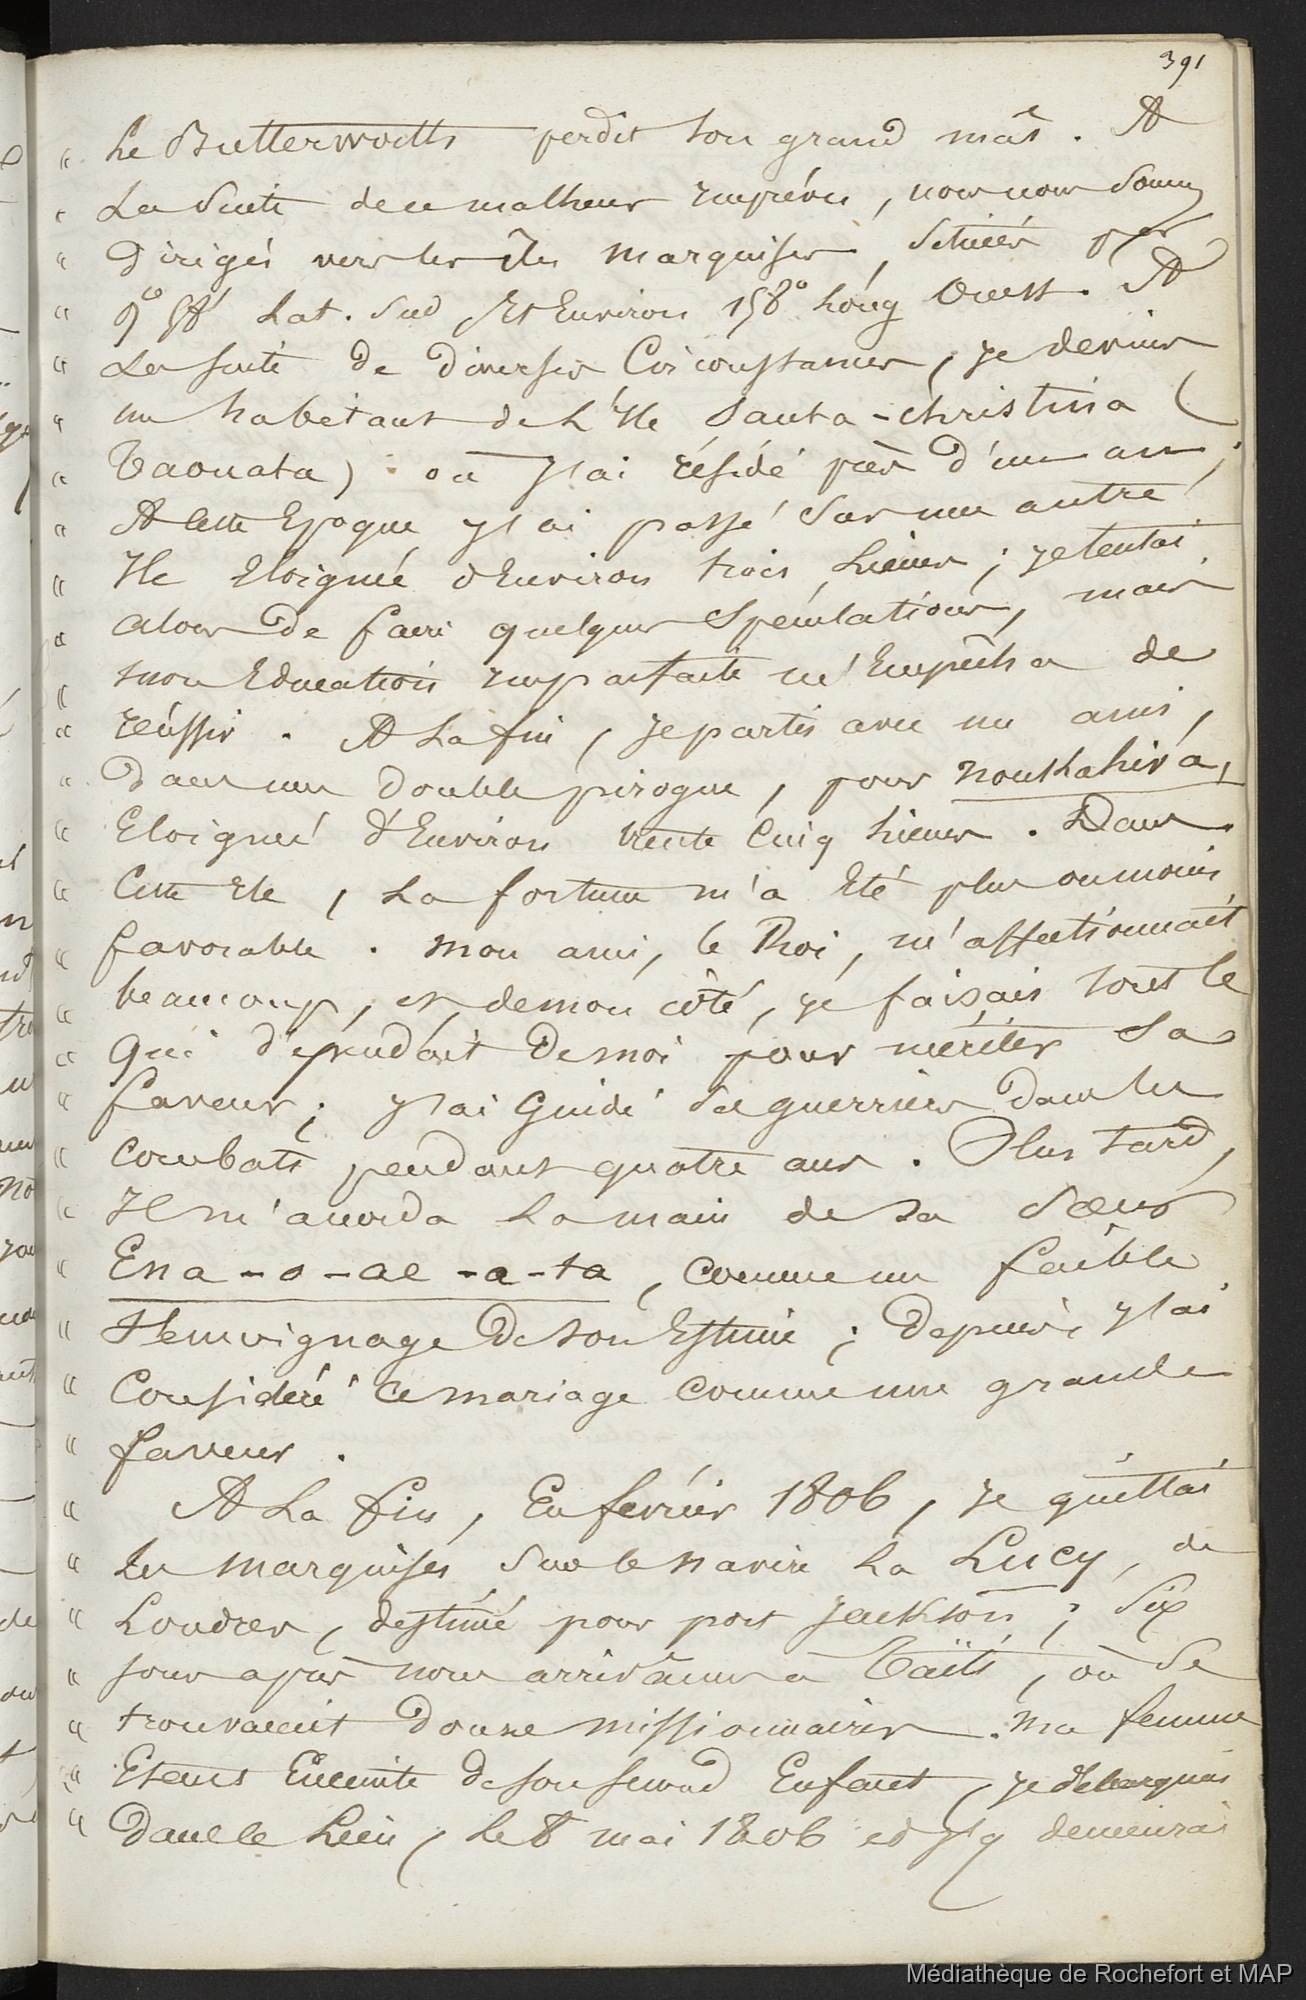 391
" Le Butterworth perdit son grand mât. A
" La Suite de ce malheur imprévu, nous nous Somm
" Dirigés vers les îles marquises, Situées par
" 9° 58' Lat. Sud Et Environ 158° Long Ouest. A
" La suite de diverses Circonstances, je devins
" un habitant de L'Ile Santa-christina (
" Taouata) où J'ai résidé près d'un an ;
" A Cette Epoque J'ai passé Sur une autre
" Ile Eloignée d'Environ trois Lieues ; je tentai
" alors de faire quelques Spéculations, mais
" mon Education imparfaite m'Empêcha de
" réussir. A La fin, je partis avec un ami,
" dans une double pirogue, pour Noukahiva,
" Eloigné d'Environ trente Cinq Lieues. Dans
" Cette Ile, La fortune m'a Eté plus ou moins
" favorable. mon ami, le Roi, m'affectionnait
" beaucoup, et de mon côté, je faisais tout Ce
" Qui dépendait De moi pour mériter Sa
" faveur ; J'ai Guidé Ses guerriers dans les
" Combats pendant quatre ans. Plus tard,
" Il m'accorda La main de Sa Soeur
" Ena-o-ae-a-ta, comme un faible
" témoignage De Son Estime ; Depuis J'ai
" Considéré Ce mariage comme une grande
" faveur.
" A La fin, En fevrier 1806, Je quittai
" les marquises Sur le navire La Lucy, de
" Londres, destiné pour port Jackson ; Six
" jours après nous arrivâmes à Taïti, où Se
" trouvaient douze missionnaires. Ma femme
" Etant Enceinte de son second Enfant, je débarquai
" Dans le Lieu, Le 8 mai 1806 et J'y demeurai
Médiathèque de Rochefort et MAP